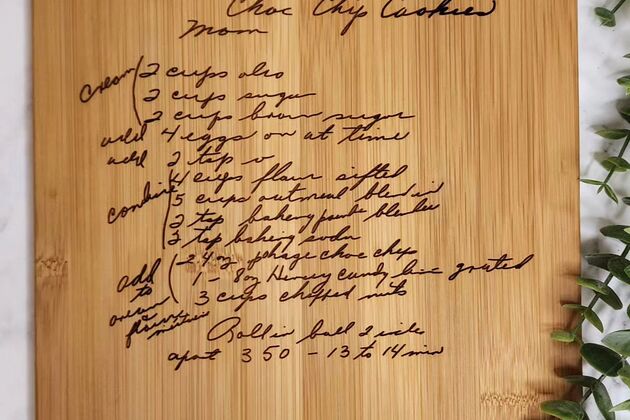 Choc Chip Cookies
Mom
Cream 2 cups oleo
2 cups sugar
2 cups brown sugar
add 4 eggs on at time
add 2 tsp v
combine 4 cups flour sifted
5 cups oatmeal blended in
2 tsp baking powder blender
2 tsp baking soda
add to cream & flour mixture
24 oz pkage choc chip
1 - 8 oz Hersey candy bar grated
3 cups chopped nuts
Roll in ball 2 inches
apart 350 - 13 to 14 min